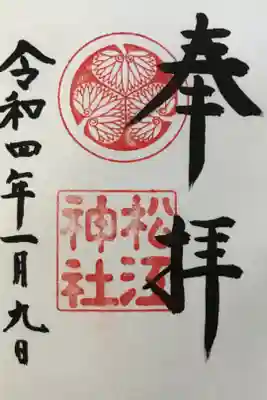 奉拝
松江
神社
令和四年一月九日